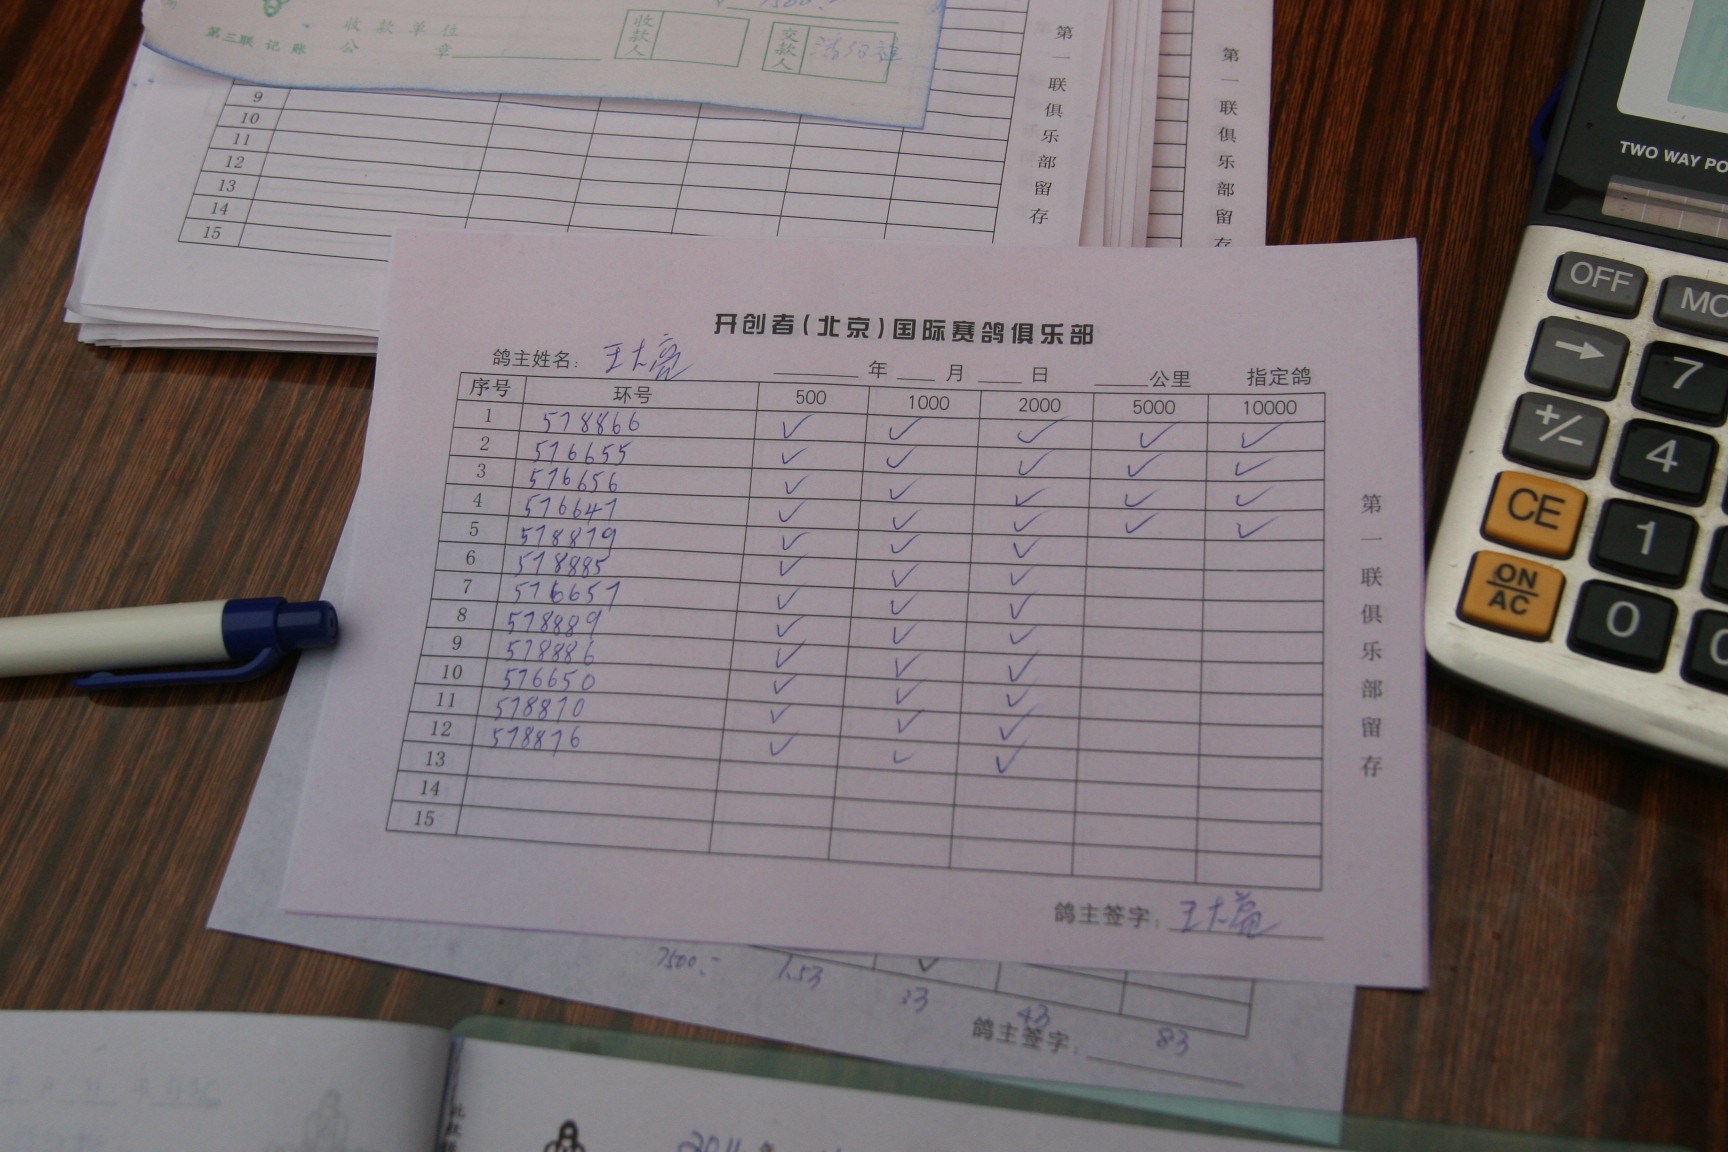 第三联 记账
收款单位
公 章
收款人
交款人
9
10
11
12
13
14
15
第一联俱乐部留存
第一联俱乐部留存
TWO WAY PO
OFF
→ 7
+/− 4
CE 1
ON/AC 0
开创者(北京)国际赛鸽俱乐部
鸽主姓名: 王大亮 年 月 日 公里 指定鸽
序号 环号 500 1000 2000 5000 10000
1 578866 ✓ ✓ ✓ ✓ ✓
2 576655 ✓ ✓ ✓ ✓ ✓
3 576656 ✓ ✓ ✓ ✓ ✓
4 576647 ✓ ✓ ✓ ✓ ✓
5 578879 ✓ ✓ ✓
6 578885 ✓ ✓ ✓
7 576657 ✓ ✓ ✓
8 578889 ✓ ✓ ✓
9 578886 ✓ ✓ ✓
10 576650 ✓ ✓ ✓
11 578870 ✓ ✓ ✓
12 578876 ✓ ✓ ✓
13
14
15
第一联俱乐部留存
鸽主签字: 王大亮
7500.- 153 33 43 83
鸽主签字:
2011 年